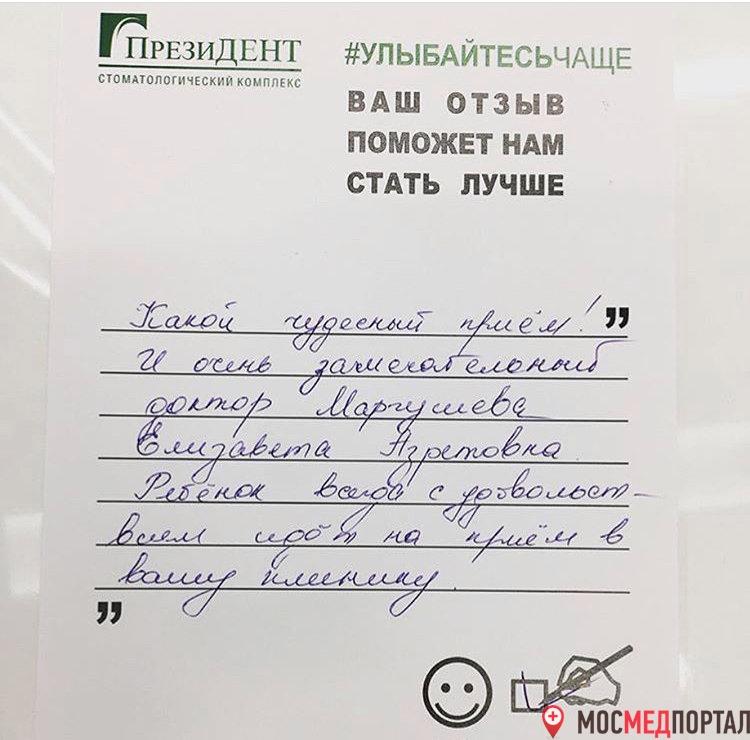 ПРЕЗИДЕНТ
СТОМАТОЛОГИЧЕСКИЙ КОМПЛЕКС
#УЛЫБАЙТЕСЬЧАЩЕ
ВАШ ОТЗЫВ
ПОМОЖЕТ НАМ
СТАТЬ ЛУЧШЕ
Какой чудесный приём! ”
И очень замечательный
доктор Маргушева
Елизавета Азретовна
Ребёнок всегда с удовольст-
вием идёт на приём в
вашу клинику.
”
МОСМЕДПОРТАЛ